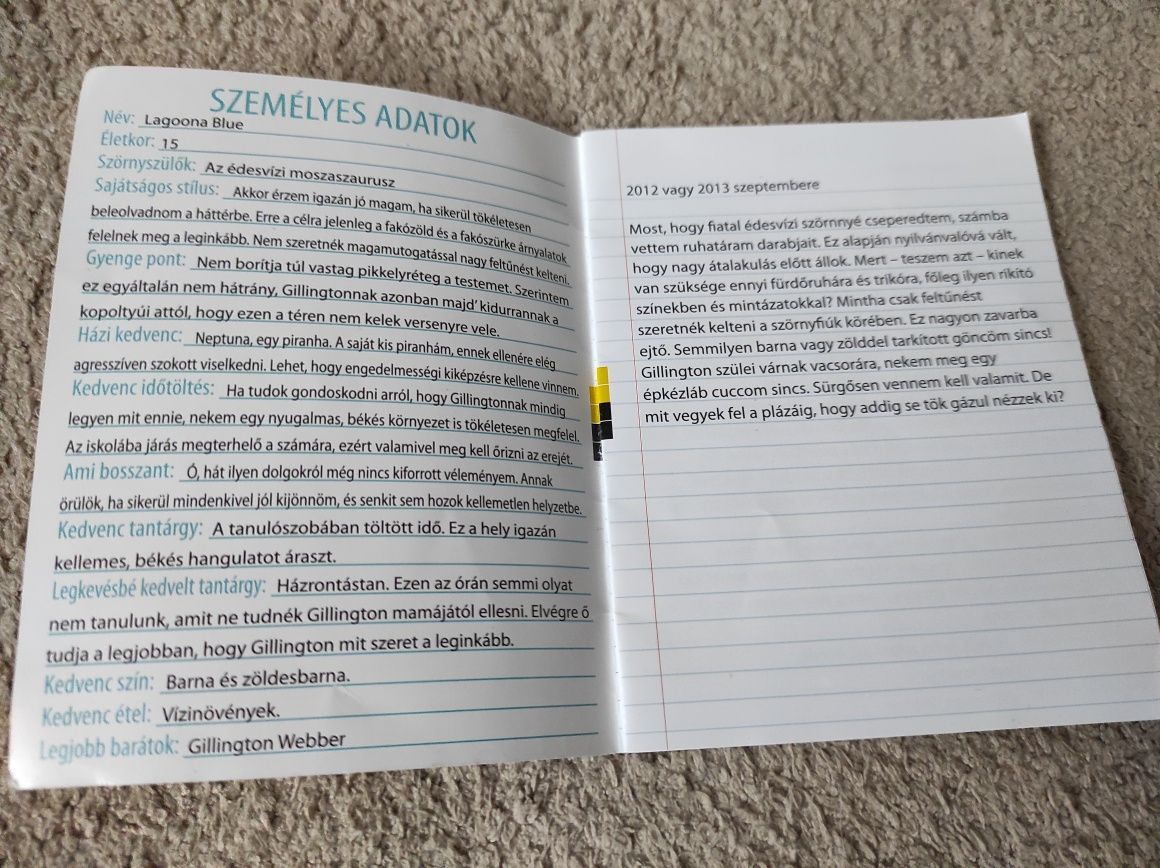 SZEMÉLYES ADATOK
Név: Lagoona Blue
Életkor: 15
Szörnyszülők: Az édesvízi moszaszaurusz
Sajátságos stílus: Akkor érzem igazán jó magam, ha sikerül tökéletesen
beleolvadnom a háttérbe. Erre a célra jelenleg a fakózöld és a fakószürke árnyalatok
felelnek meg a leginkább. Nem szeretnék magamutogatással nagy feltűnést kelteni.
Gyenge pont: Nem borítja túl vastag pikkelyréteg a testemet. Szerintem
ez egyáltalán nem hátrány, Gillingtonnak azonban majd' kidurrannak a
kopoltyúi attól, hogy ezen a téren nem kelek versenyre vele.
Házi kedvenc: Neptuna, egy piranha. A saját kis piranhám, ennek ellenére elég
agresszíven szokott viselkedni. Lehet, hogy engedelmességi kiképzésre kellene vinnem.
Kedvenc időtöltés: Ha tudok gondoskodni arról, hogy Gillingtonnak mindig
legyen mit ennie, nekem egy nyugalmas, békés környezet is tökéletesen megfelel.
Az iskolába járás megterhelő a számára, ezért valamivel meg kell őrizni az erejét.
Ami bosszant: Ó, hát ilyen dolgokról még nincs kiforrott véleményem. Annak
örülök, ha sikerül mindenkivel jól kijönnöm, és senkit sem hozok kellemetlen helyzetbe.
Kedvenc tantárgy: A tanulószobában töltött idő. Ez a hely igazán
kellemes, békés hangulatot áraszt.
Legkevésbé kedvelt tantárgy: Házrontástan. Ezen az órán semmi olyat
nem tanulunk, amit ne tudnék Gillington mamájától ellesni. Elvégre ő
tudja a legjobban, hogy Gillington mit szeret a leginkább.
Kedvenc szín: Barna és zöldesbarna.
Kedvenc étel: Vízinövények.
Legjobb barátok: Gillington Webber
2012 vagy 2013 szeptembere
Most, hogy fiatal édesvízi szörnnyé cseperedtem, számba
vettem ruhatáram darabjait. Ez alapján nyilvánvalóvá vált,
hogy nagy átalakulás előtt állok. Mert – teszem azt – kinek
van szüksége ennyi fürdőruhára és trikóra, főleg ilyen rikító
színekben és mintázatokkal? Mintha csak feltűnést
szeretnék kelteni a szörnyfiúk körében. Ez nagyon zavarba
ejtő. Semmilyen barna vagy zölddel tarkított göncöm sincs!
Gillington szülei várnak vacsorára, nekem meg egy
épkézláb cuccom sincs. Sürgősen vennem kell valamit. De
mit vegyek fel a plázáig, hogy addig se tök gázul nézzek ki?